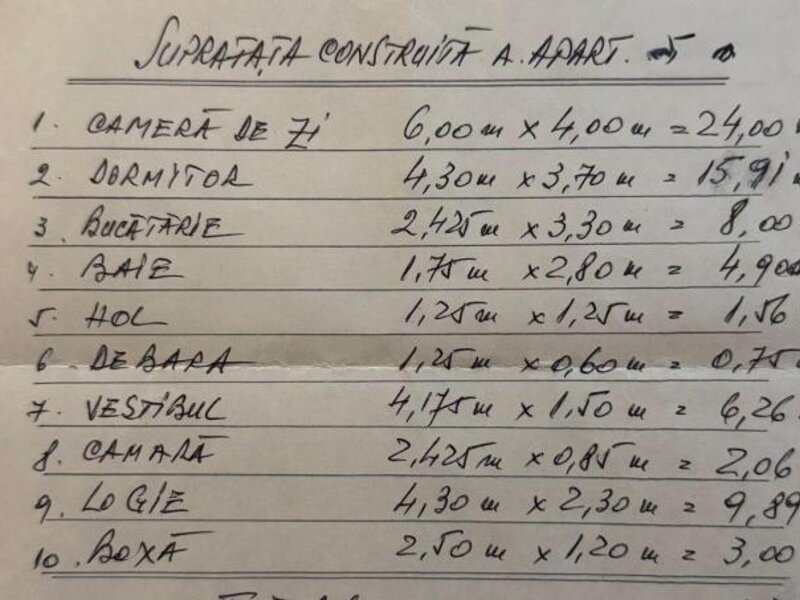 SUPRAFAȚA CONSTRUITĂ A. APART. 5
1. CAMERĂ DE ZI 6,00 m x 4,00 m = 24,00
2. DORMITOR 4,30 m x 3,70 m = 15,91
3. BUCĂTĂRIE 2,425 m x 3,30 m = 8,00
4. BAIE 1,75 m x 2,80 m = 4,90
5. HOL 1,25 m x 1,25 m = 1,56
6. DEBARA 1,25 m x 0,60 m = 0,75
7. VESTIBUL 4,175 m x 1,50 m = 6,26
8. CAMARĂ 2,425 m x 0,85 m = 2,06
9. LOGIE 4,30 m x 2,30 m = 9,89
10. BOXĂ 2,50 m x 1,20 m = 3,00